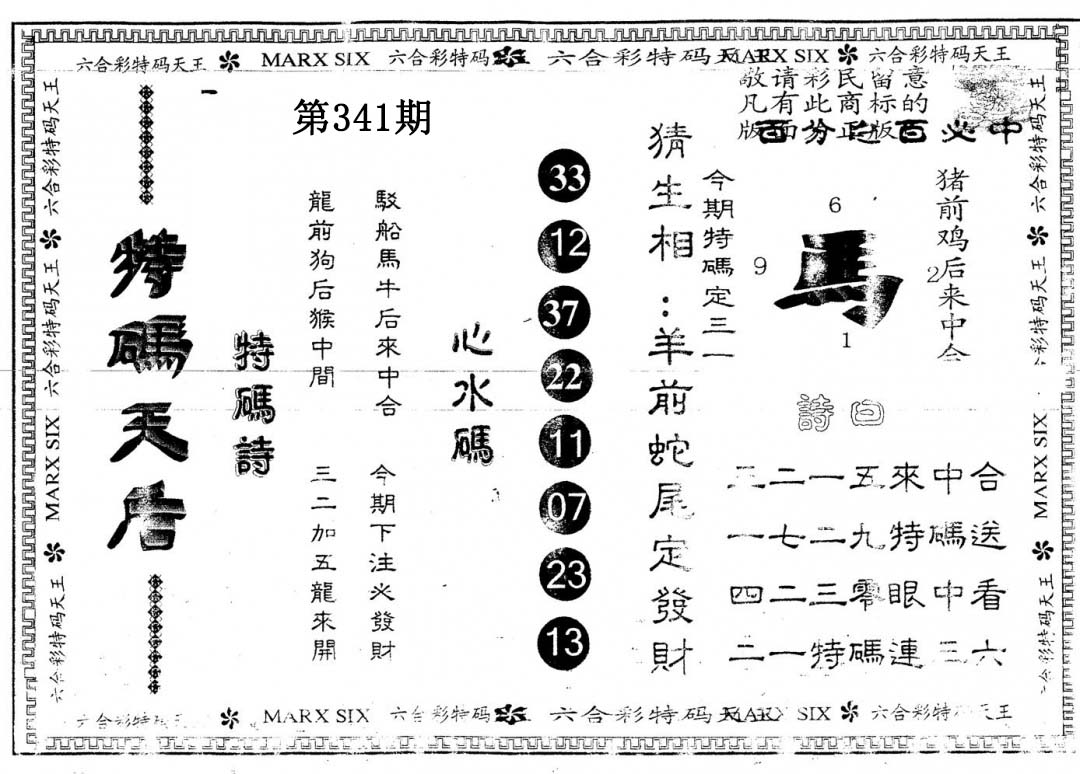 六合彩特码天王 MARX SIX 六合彩特码 六合彩特码天王 MARX SIX 六合彩特码天王
敬请彩民留意
凡有此商标的
版面为正版
百分之百必中
第341期
特碼天后
特碼詩
龍前狗后猴中間
三二加五龍來開
駁船馬牛后來中合
今期下注必發財
心水碼
33
12
37
22
11
07
23
13
猜生相：羊前蛇尾定發財
今期特碼定三一
6
9
馬
2
1
猪前鸡后来中合
詩曰
三二一五來中合
一七二九特碼送
四二三零眼中看
二一特碼連三六
六合彩特码天王 MARX SIX 六合彩特码天王 六合彩特码天王
六合彩特码天王 六合彩特码天王 MARX SIX 六合彩特码天王
MARX SIX 六合彩特码 六合彩特码天王 MARX SIX 六合彩特